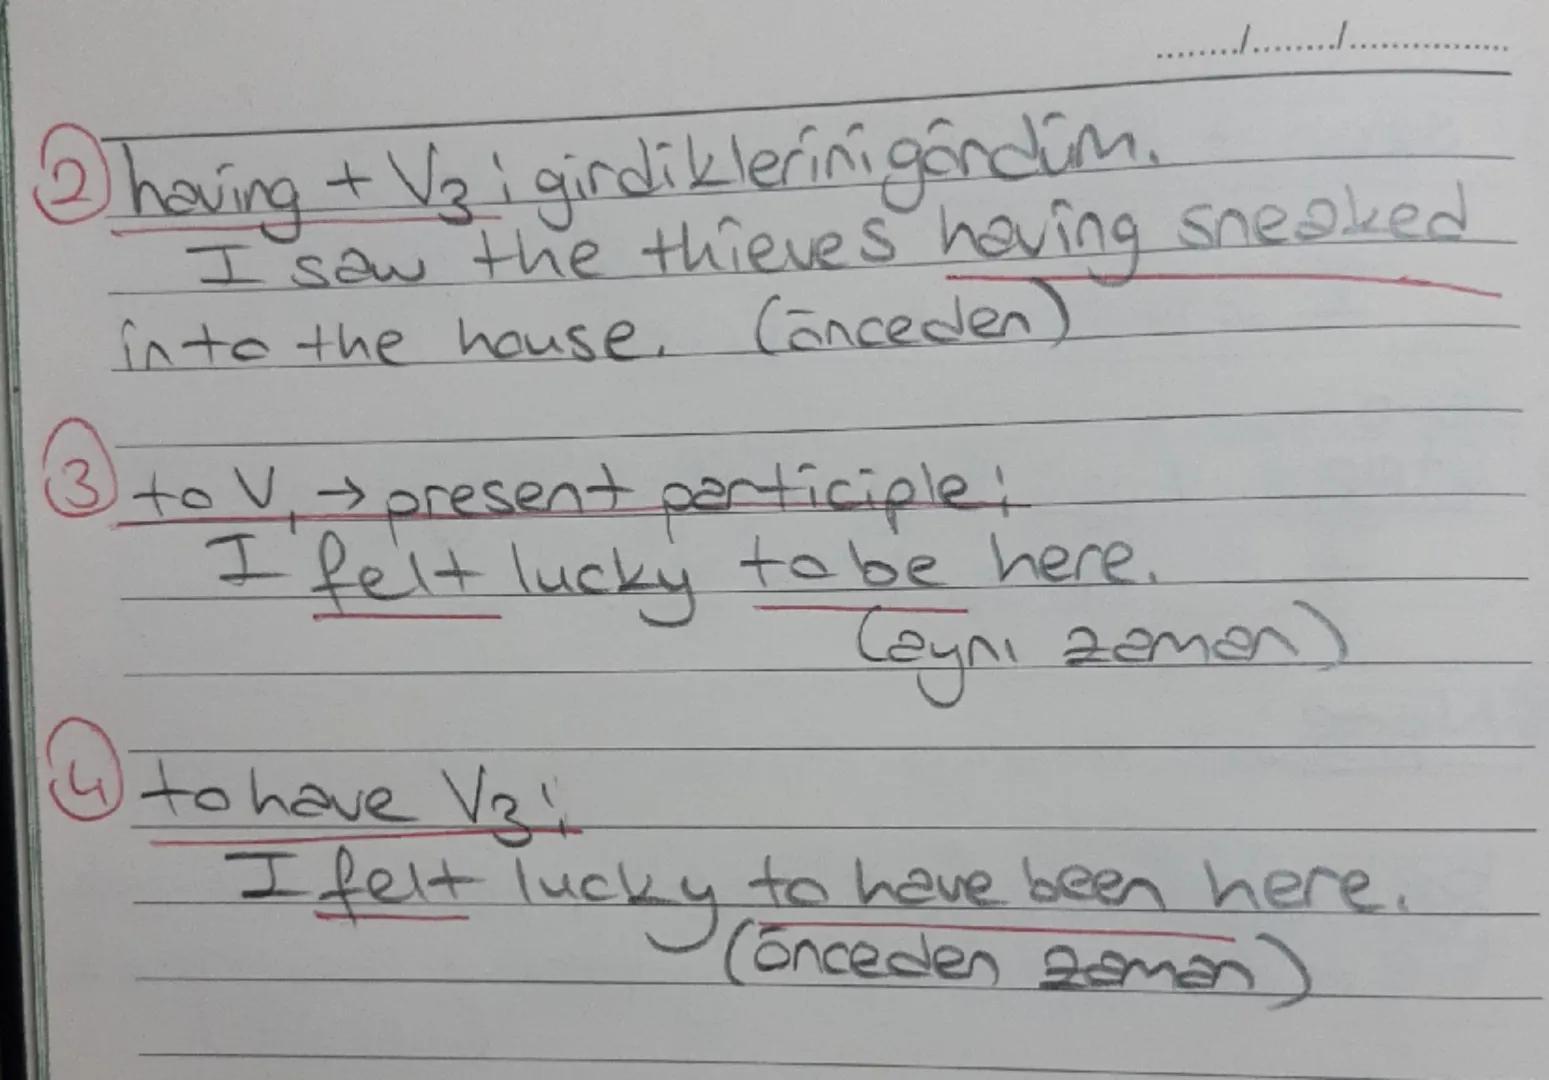 ......../......../..............
2 having + V3 ; girdiklerini gördüm.
I saw the thieves having sneaked
into the house. (önceden)
3 to V1 → present participle ;
I felt lucky to be here.
(aynı zaman)
4 to have V3 ;
I felt lucky to have been here.
(önceden zaman)